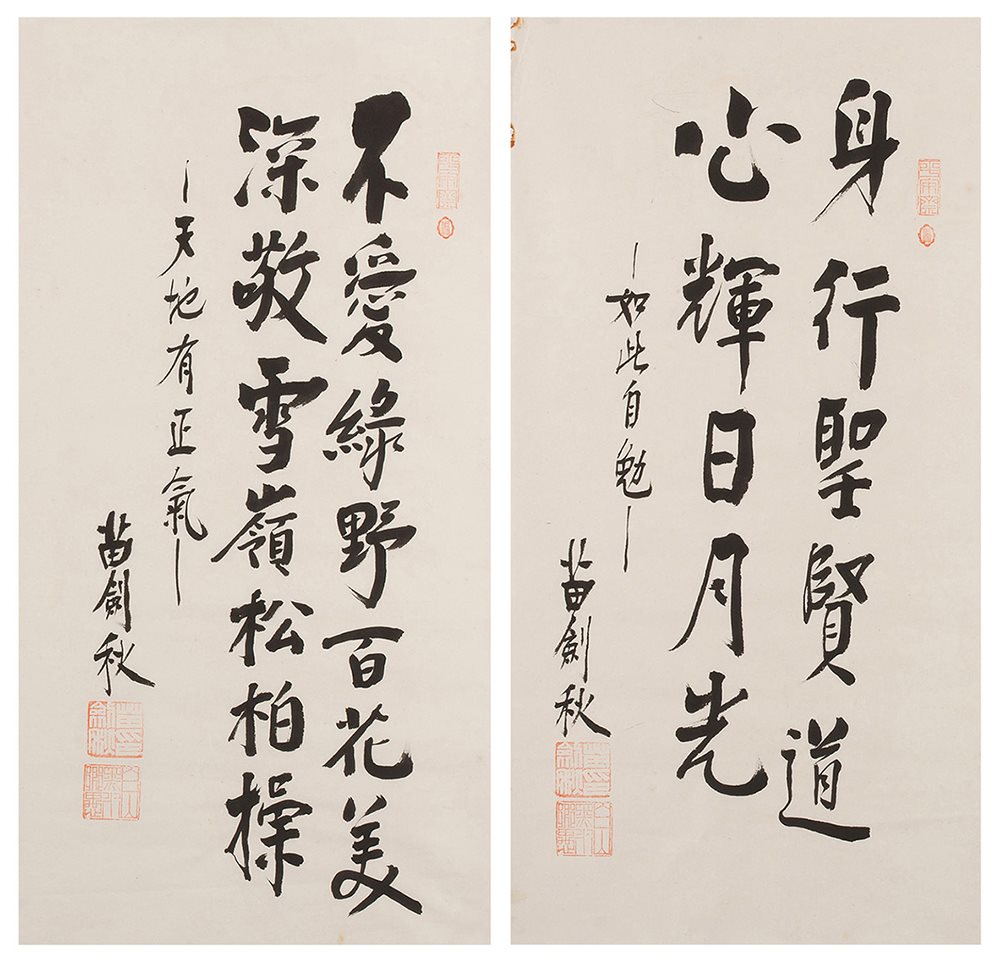 身行聖賢道
心輝日月光
－如此自勉－
苗劍秋
不愛綠野百花美
深敬雪嶺松柏操
－天地有正氣－
苗劍秋